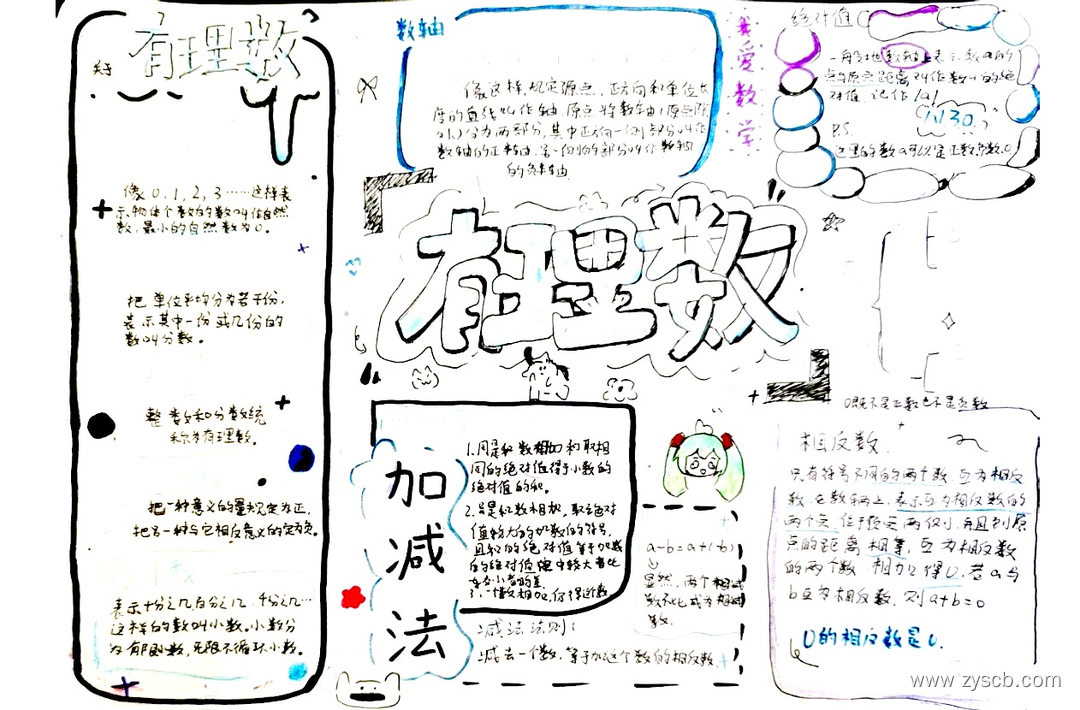 关于
有理数
像0,1,2,3……这样表
示物体个数的数叫作自然
数,最小的自然数为0。
把单位平均分为若干份,
表示其中一份或几份的
数叫分数。
整数和分数统
称为有理数。
把一种意义的量规定为正,
把另一种与它相反意义的定为负。
表示十分之几百分之几,千分之几…
这样的数叫小数。小数分
为有限小数,无限不循环小数。
数轴
像这样,规定原点、正方向和单位长
度的直线叫作轴,原点将数轴(原点除
外)分为两部分,其中正方向一侧部分叫作
数轴的正半轴,另一侧的部分叫作数轴
的负半轴
我爱数学
绝对值
一般地数轴上表示数a的
点与原点距离叫作数a的绝
对值,记作|a|
P.S
这里的数a可以是正数负数,0
有理数
0既不是正数也不是负数
加减法
同的绝对值得于小数的
绝对值的和。
值较大的加数的符号,
且和的绝对值等于加数
的绝对值
减法法则:
减去一个数,等于加这个数的相反数。
a-b=a+(-b)
显然,两个相
相反数
只有符号不同的两个数,互为相反
数,在数轴上,表示互为相反数的
两个点,位于原点两侧,并且到原
点的距离相等,互为相反数
的两个数相加得0,若a与
b互为相反数,则a+b=0
0的相反数是0.
www.zyscb.com